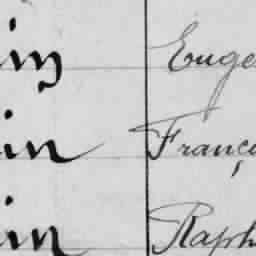 in Euge
in Franç
in Raph